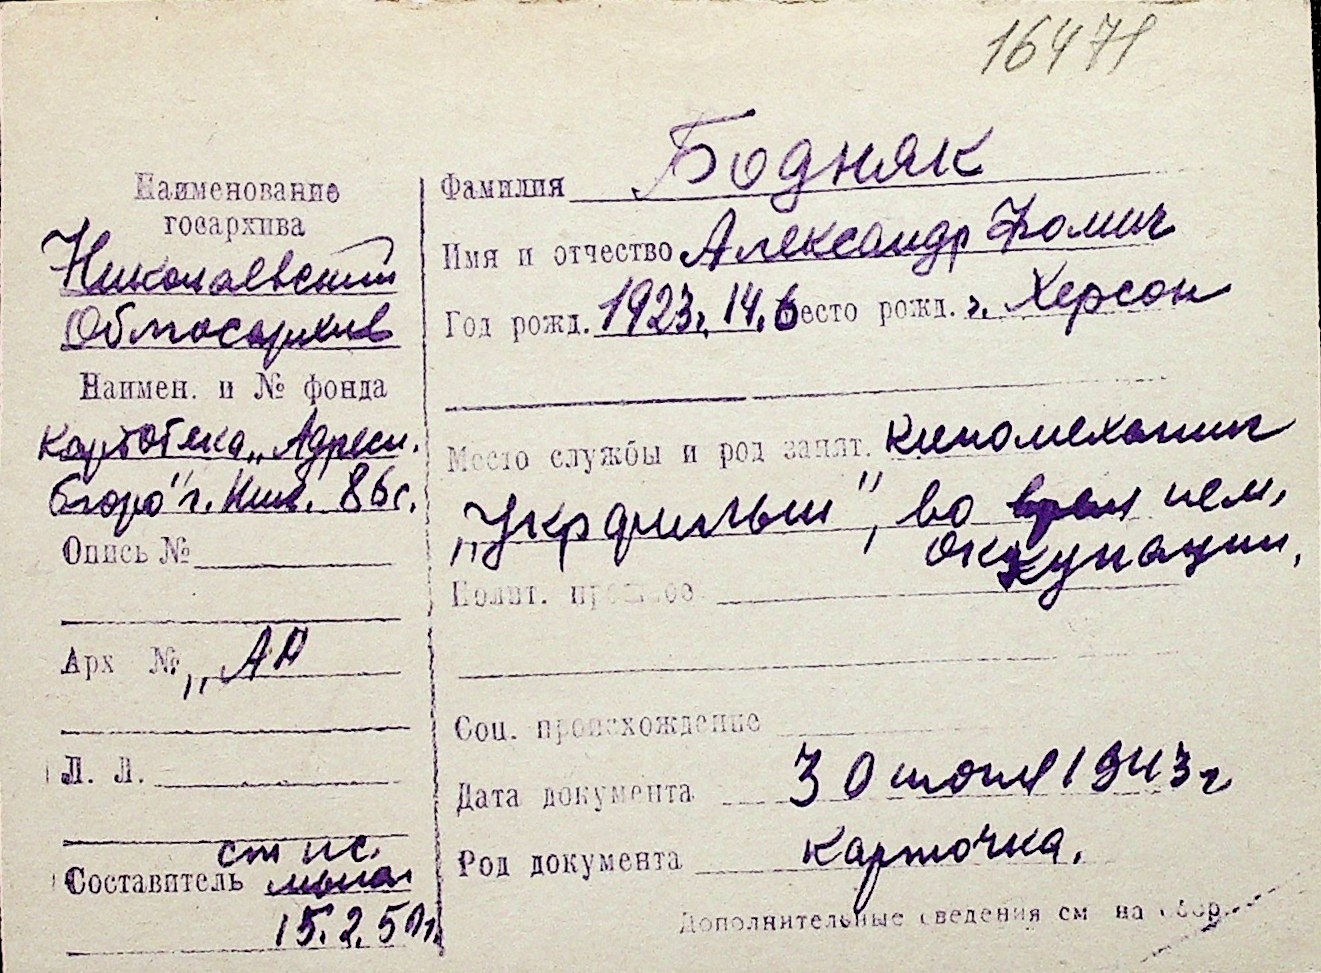 16471
Наименование
госархива
Николаевский
Облгосархив
Наимен. и № фонда
картотека „Адресн.
бюро" г. Ник. 86с.
Опись №
Арх № „АА
Л. Л.
ст ис.
Составитель
15.2.50г.
Фамилия Бодняк
Имя и отчество Александр Фомич
Год рожд. 1923, 14.6 есто рожд. г. Херсон
Место службы и род занят. киномеханик
„Укрфильм", во время нем.
оккупации.
Полит. прошлое
Соц. происхождение
Дата документа 30 июля 1943 г
Род документа карточка.
Дополнительные сведения см на обор.